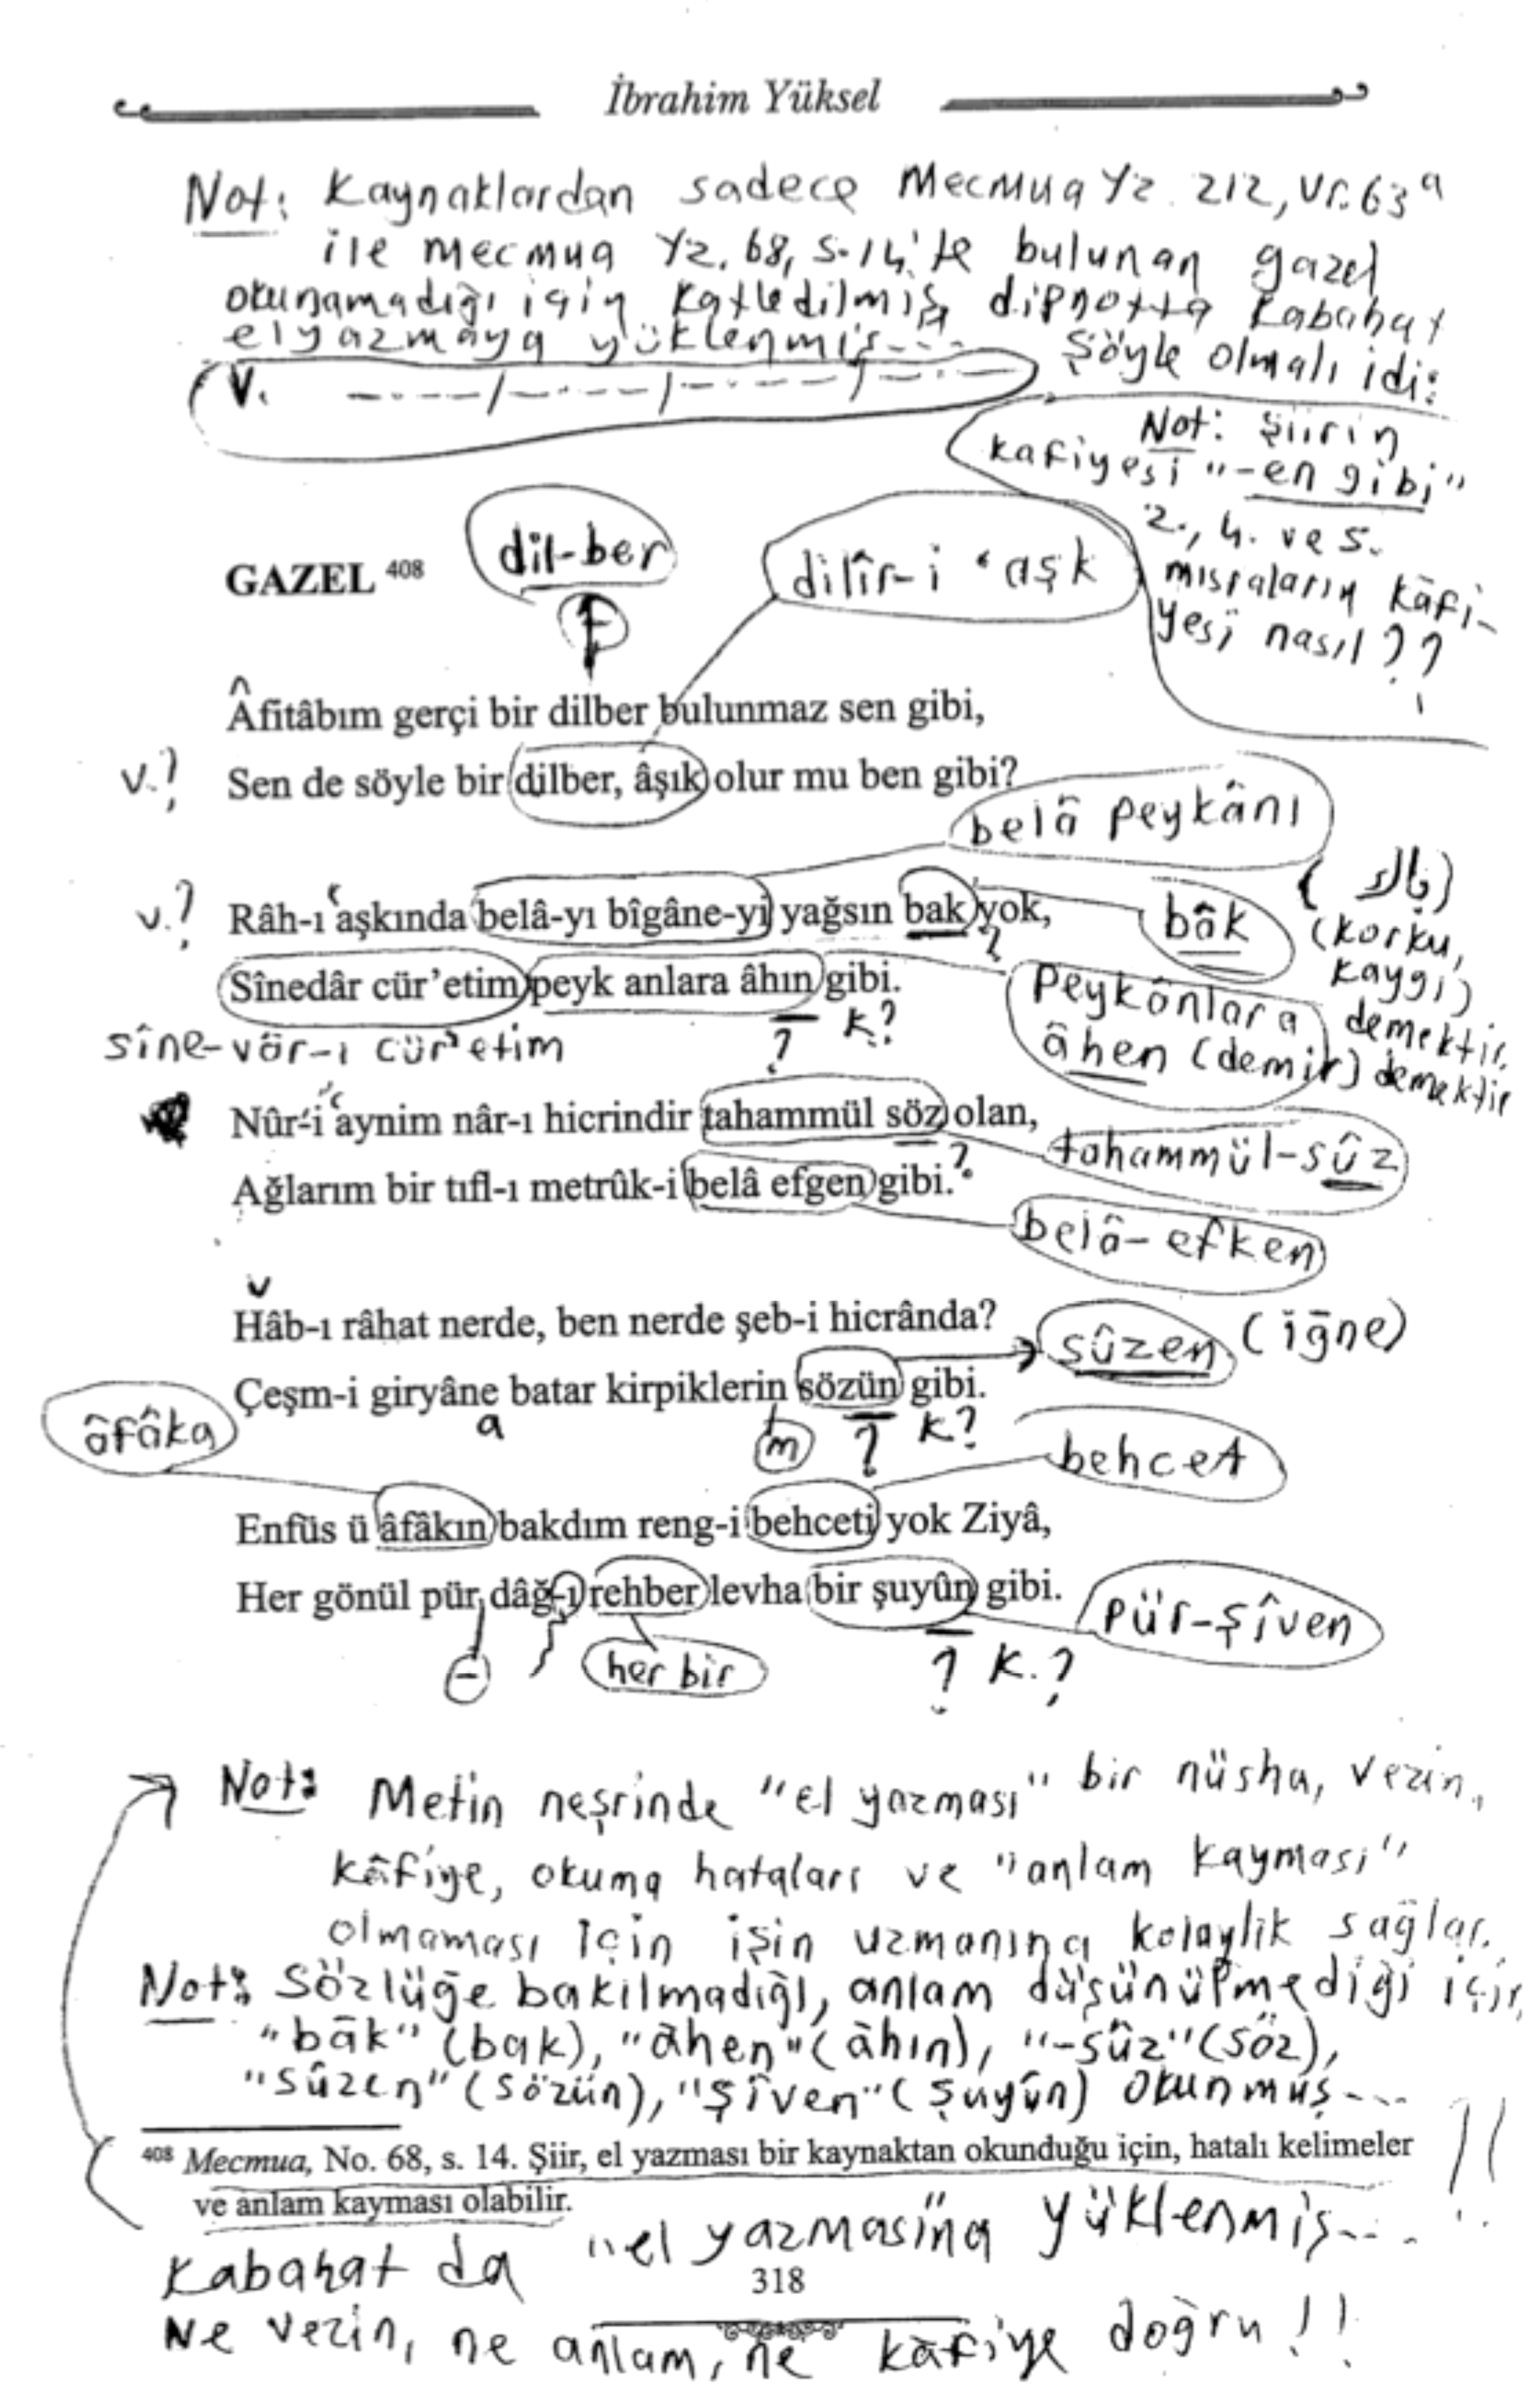 İbrahim Yüksel
Not: Kaynaklardan sadece Mecmua Yz. 212, vr. 63a
ile Mecmua Yz. 68, s. 14'te bulunan gazel
okunamadığı için katledilmiş, dipnotta kabahat
elyazmaya yüklenmiş... Şöyle olmalı idi:
V. — . — — / — . — — / — . — — / — . —
Not: Şiirin
kafiyesi "-en gibi"
2., 4. ve 5.
mısraların kâfi-
yesi nasıl??
dil-ber
dilîr-i 'aşk
GAZEL 408
Âfitâbım gerçi bir dilber bulunmaz sen gibi,
v.? Sen de söyle bir dilber, âşık olur mu ben gibi?
belâ peykânı
v.? Râh-ı aşkında belâ-yı bîgâne-yi yağsın bak yok,
bâk
(باك)
(korku,
kaygı)
demektir
Sînedâr cür'etim peyk anlara âhın gibi.
? K?
sîne-vâr-ı cür'etim
Peykânlara
âhen (demir) demektir
Nûr-i aynim nâr-ı hicrindir tahammül söz olan,
tahammül-sûz
Ağlarım bir tıfl-ı metrûk-i belâ efgen gibi.
?
belâ-efken
Hâb-ı râhat nerde, ben nerde şeb-i hicrânda?
sûzen (iğne)
Çeşm-i giryâne batar kirpiklerin sözün gibi.
a m ? K?
âfâka
behcet
Enfüs ü âfâkın bakdım reng-i behceti yok Ziyâ,
Her gönül pür dâğ-ı rehber levha bir şuyûn gibi.
pür-şîven
her bir
? K.?
Not: Metin neşrinde "el yazması" bir nüsha, vezin,
kâfiye, okuma hataları ve "anlam kayması"
olmaması için işin uzmanına kolaylık sağlar.
Not: Sözlüğe bakılmadığı, anlam düşünülmediği için
"bâk" (bak), "âhen" (âhın), "-sûz" (söz),
"sûzen" (sözün), "şîven" (şuyûn) okunmuş...
408 Mecmua, No. 68, s. 14. Şiir, el yazması bir kaynaktan okunduğu için, hatalı kelimeler
ve anlam kayması olabilir.
!!
Kabahat da "el yazması"na yüklenmiş...
318
Ne vezin, ne anlam, ne kâfiye doğru!!